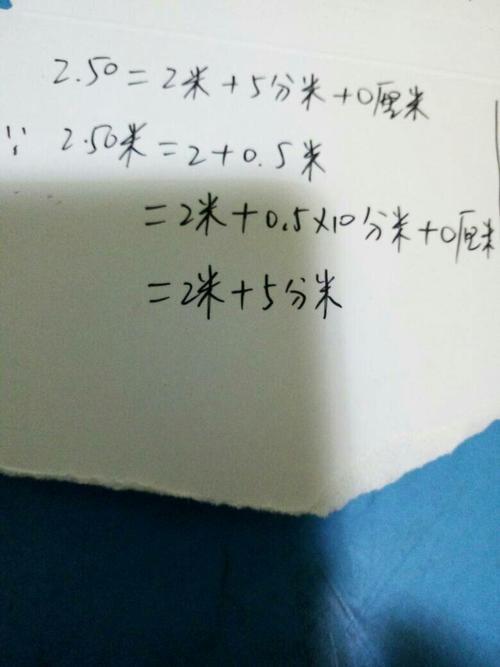 2.50=2米+5分米+0厘米
∵ 2.50米=2+0.5米
=2米+0.5×10分米+0厘米
=2米+5分米